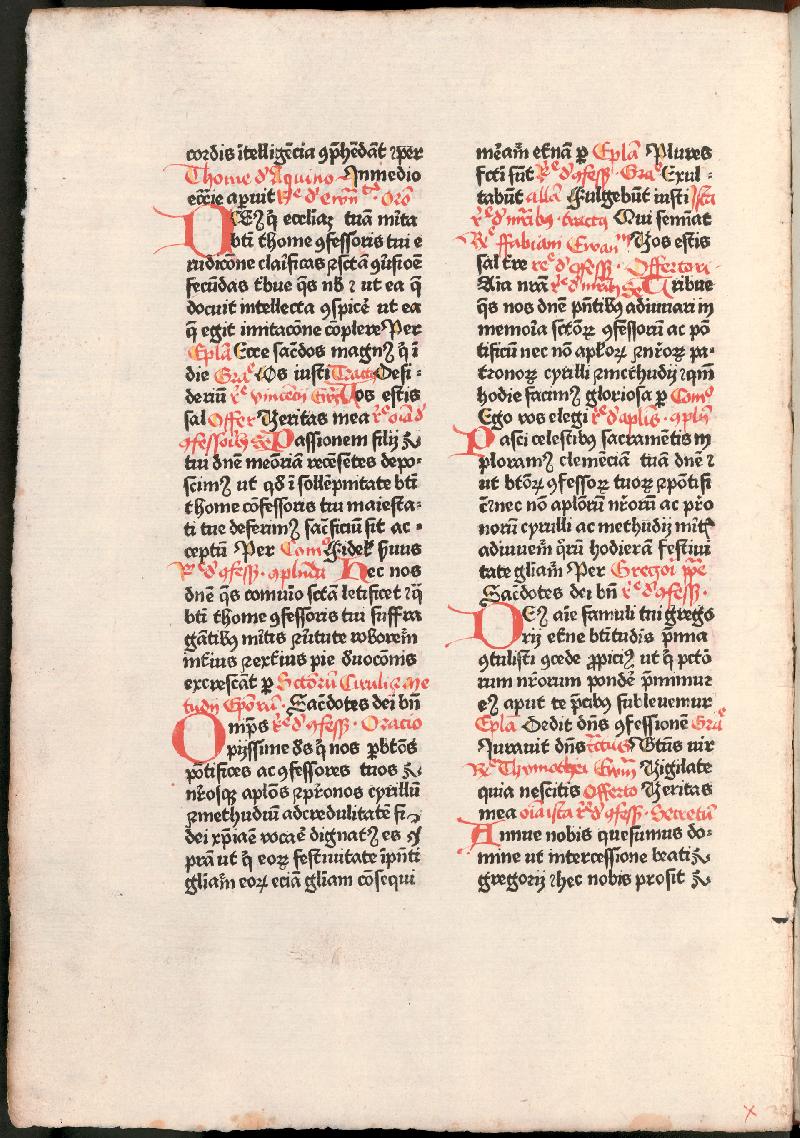 cordis ītelligēcia ꝯp̄hēdāt ⁊ per
Thome d' Aquino Jnmedio
ecc̄ie apruit R̄e d' ewāⁿ Orō
DEꝰ q̄ eccliaꝫ tuā mīta
bt̄i thome ꝯfessoris tui e
rudicōne clarificas ⁊sctā ꝯūsioē
fecūdas tbue q̄s nb̄ ⁊ ut ea q̄
docuit intellecta ꝯspicē ut ea
q̄ egit imitacōne cōplere Per
Eplā Ecce sac̄dos magnꝰ q̄ ī
die Graᵉ Os iusti Tractꝰ Desi-
deriū rᵉ vincēcii Ewāⁿ Uos estis
sal Offer Veritas mea rᵉ oīa d'
ꝯfessorībꝫ Se Passionem filij
tui dnē memōriā recēsētes depo-
scimꝰ ut qd̄ ī sollēpnitate bt̄i
thome cōfessoris tui maiesta-
ti tue deferimꝰ sac̄ficiū sit ac-
ceptū Per Comᵒ Fidel̓ s̓uus
R̄ᵉ d' ꝯfess. ꝯplndū Hec nos
dnē q̄s comūio sctā letificet ⁊ q̄
bt̄i thome ꝯfessoris tui suffra
gātibꝫ mītis ⁊ūtute roborem̄
int̄ius ⁊ext̄ius pie duocōnis
excrescāt ꝑ Sctōrū Cirulli ⁊ me
tudij Epōrūⁿ. Sac̄dotes dei bn̄
Omp̄s R̄ᵉ d' ꝯfess. Oracio
pijssime ds̄ q̄ nos ꝑ bt̄ōs
pōtifices ac ꝯfessores tuos
nr̄osqꝫ aplōs ⁊pr̄onos cyrillū
⁊methudiū ad credulitatē fi
dei xp̄iāe vocāē dignatꝰ es
prā ut q̄ eoꝝ festiuitate īpn̄ti
gliām̄ eoꝝ eciā gliām cōsequi
mēam̄ et̄nā ꝑ Eplā Plures
fcti sūt R̄ᵉ d' ꝯfess Graᵉ Exul-
tabūt allā Fulgebūt iusti Ista
rᵉ d' mr̄ibꝫ. tractꝰ Qui semīat
R̄ᵉ ffabiani Ewanᵐ Uos estis
sal t̄re rᵉ d' ꝯfess. Offertori
Aīa nrā rᵉ d' mr̄ib Se Tribue
q̄s nos dnē pn̄tibꝫ adiuuari in
memoīa sctōꝝ ꝯfessorū ac pō
tificiū nec nō aplōꝝ ⁊nr̄oꝝ pa-
tronoꝝ cyrilli ⁊methudij ⁊ qm̄
hodie facimꝰ gloriosa ꝑ Comᵒ
Ego vos elegi rᵉ d' aplīs. ꝯplⁿ
Pasci celestibꝫ sacramētis m
ploramꝰ clemēciā tuā dnē ⁊
ut bt̄oꝝ ꝯfessoꝝ tuoꝝ ⁊pōtifi
c̄ ⁊nec nō aplōrū nr̄orū ac pr̄o
norū cyrulli ac methudij mīt̄
adiuuem̄ qrū hodierā festiui
tate gliām̄ Per Gregorī pp̄e
Sac̄dotes dei bn̄ rᵉ d' ꝯfess.
DEꝰ aīe famuli tui gregꝰ
rij et̄ne bt̄itudīs pīmia
ꝯtulisti ꝯcede ꝓpiciꝰ ut q̄ pctō
rum nr̄orum pondē pīmimur
eꝰ aput te p̄cibꝫ subleuemur
Eplā Ordit dn̄s ꝯfessionē Graᵉ
Jurauit dn̄s tctus Bt̄us uir
R̄ᵉ Thymothei Ewāⁿ Vigilate
quia nescitis Offerto Veritas
mea oīa ista R̄ᵉ d' ꝯfess. Secretū
Annue nobis quesumus do-
mine ut intercessione beati
gregorij ⁊hec nobis prosit